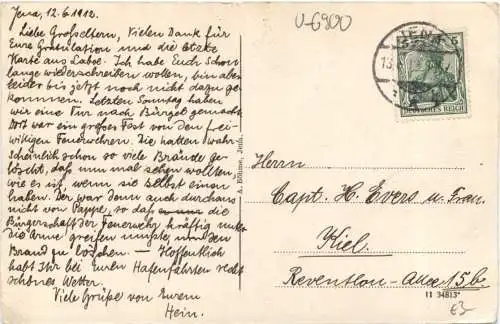 Jena, 12.6.1912.
Liebe Großeltern, Vielen Dank für
Eure Gratulation und die letzte
Karte aus Laboe. Ich habe Euch schon
lange wiederschreiben wollen, bin aber
leider bis jetzt noch nicht dazu ge-
kommen. Letzten Sonntag haben
wir eine Tur nach Bürgel gemacht.
Dort war ein großes Fest von den frei-
willigen Feuerwehren. Die hatten wahr-
scheinlich schon so viele Brände ge-
löscht, daß nun mal sehen wollten,
wie es ist, wenn sie selbst einen
haben. Der war denn auch durchaus
nicht von Pappe, so daß die
Bürgerschaft der Feuerwehr kräftig unter
die Arme greifen mußte, um den
Brand zu löschen. — Hoffentlich
habt Ihr bei Euren Hafenfahrten recht
schönes Wetter.
Viele Grüße von Eurem
Hein.
A. Böhme, Jena.
U-6900
JENA
13
5
DEUTSCHES REICH
Herrn
Capt. H. Evers u. Frau.
Kiel.
Reventlou-Allee 15b.
11 34813*
€3-